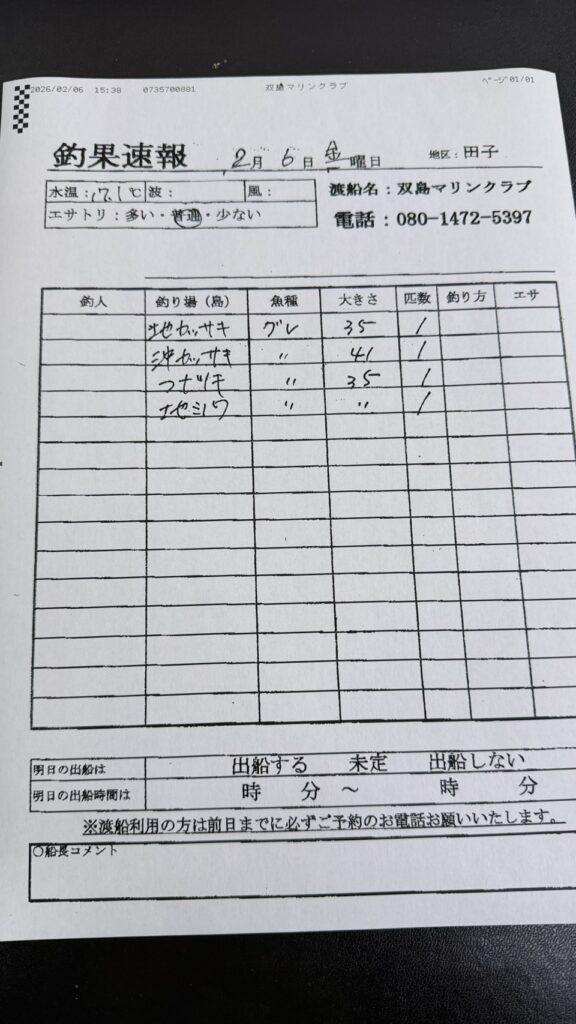 2026/02/06 15:38 0735700881 双島マリンクラブ ページ 01/01
釣果速報 2月 6日 金曜日 地区：田子
水温：17.1℃ 波： 風： 渡船名：双島マリンクラブ
エサトリ：多い・普通・少ない 電話：080-1472-5397
釣人 釣り場（島） 魚種 大きさ 匹数 釣り方 エサ
地セッサキ グレ 35 1
沖セッサキ 〃 41 1
〃 35 1
〃 〃 1
明日の出船は 出船する 未定 出船しない
明日の出船時間は 時 分 ～ 時 分
※渡船利用の方は前日までに必ずご予約のお電話お願いいたします。
○船長コメント